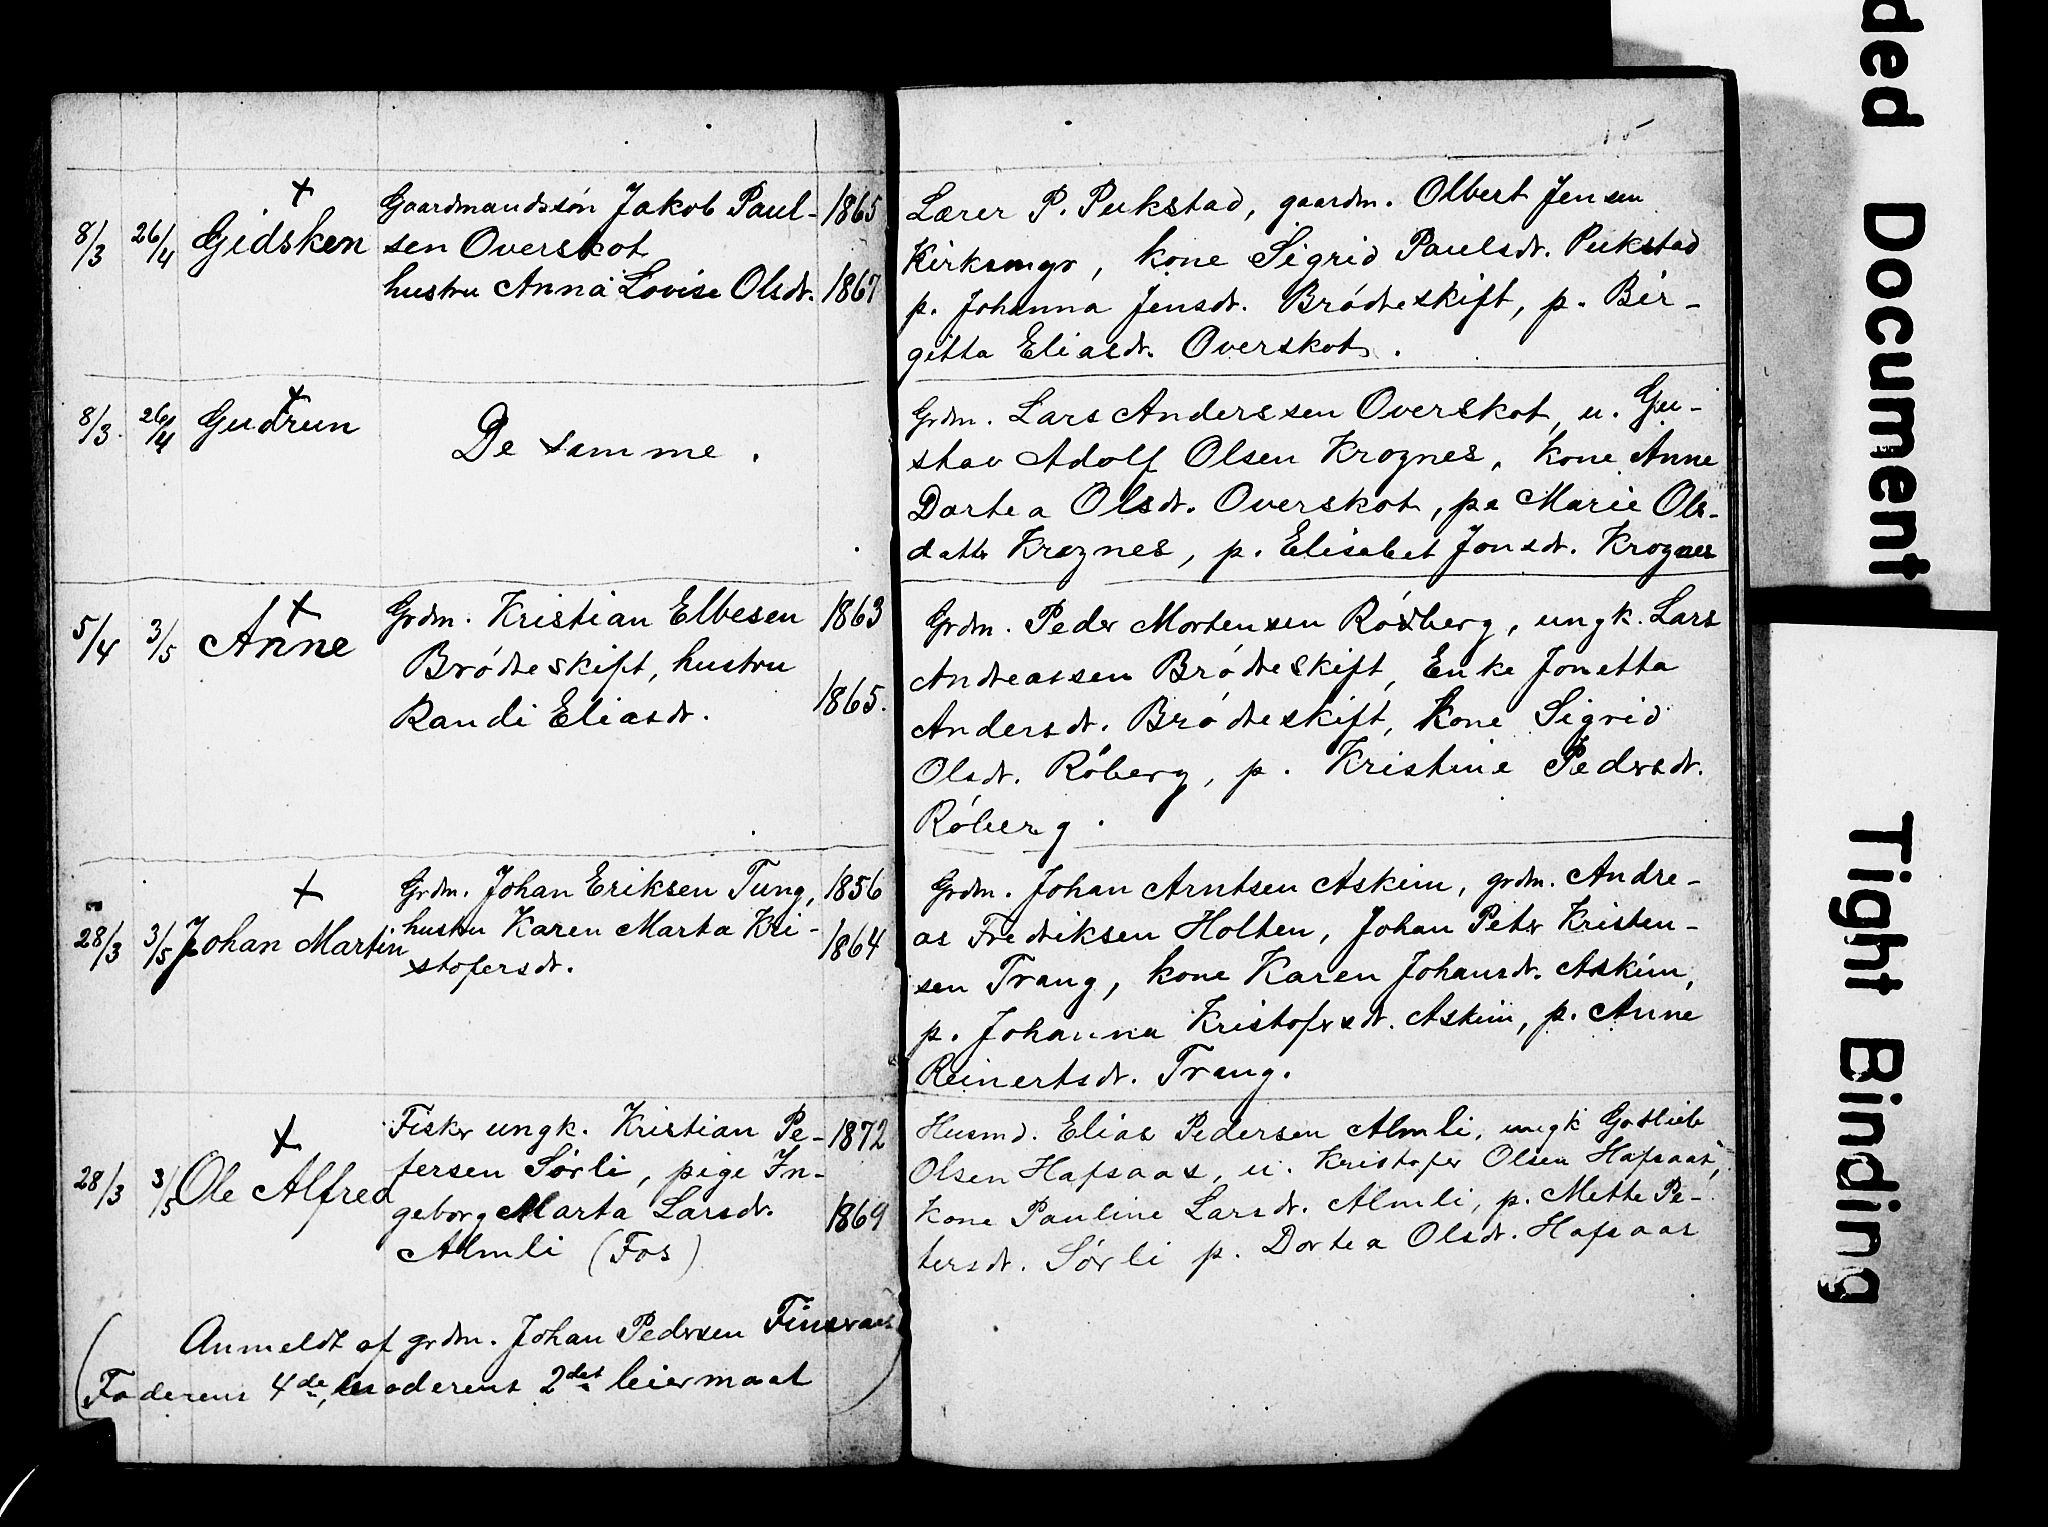 8/3 26/4 Gidsken
Gaardmandssøn Jakob Paul- 1865
sen Overskot
hustru Anna Lovise Olsdr. 1867
Lærer P. Pukstad, gaardm. Olbert Jensen
Kirksmyr, kone Sigrid Paulsdr. Pukstad
p. Johanna Jensdr. Brödreskift, p. Bir-
gitta Eliasdr. Overskot.
8/3 26/4 Gudrun
De samme.
Grdm. Lars Anderssen Overskot, u. Gu-
stav Adolf Olsen Krognes, kone Anne
Dortea Olsdr. Overskot, pe Marie Ols-
datr Krognes, p. Elisabet Jonsdr. Krognes
5/4 3/5 Anne
Grdm. Kristian Elbesen 1863
Brödreskift, hustru
Randi Eliasdr. 1865.
Grdm. Peder Mortensen Röberg, ungk. Lars
Andreassen Brödreskift, Enke Jonetta
Andersdr. Brödreskift, kone Sigrid
Olsdr. Röberg, p. Kristine Pedersdr.
Röberg.
28/3 3/5 Johan Martin
Grdm. Johan Eriksen Tung, 1856
hustru Karen Marta Kri- 1864
stofersdr.
Grdm. Johan Arntsen Askim, grdm. Andre-
as Fredriksen Holten, Johan Petr Kristen-
sen Trang, kone Karen Johansdr. Askim,
p. Johanna Kristofersdr. Askim, p. Anne
Reinertsdr. Trang.
28/3 3/5 Ole Alfred
Fisker ungk. Kristian Pe- 1872
tersen Sørli, pige In-
geborg Marta Larsdr. 1869
Almli (Fos)
Husmd. Elias Pedersen Almli, ungk Gotlieb
Olsen Hafsaas, u. Kristofer Olsen Hafsaas,
Kone Pauline Larsdr. Almli, p. Mette Pe-
tersdr. Sørli p. Dortea Olsdr. Hafsaas
(Anmeldt af grdm. Johan Pedersen
Faderens 4de, moderens 2det leiermaal)
ded Document
Tight Binding